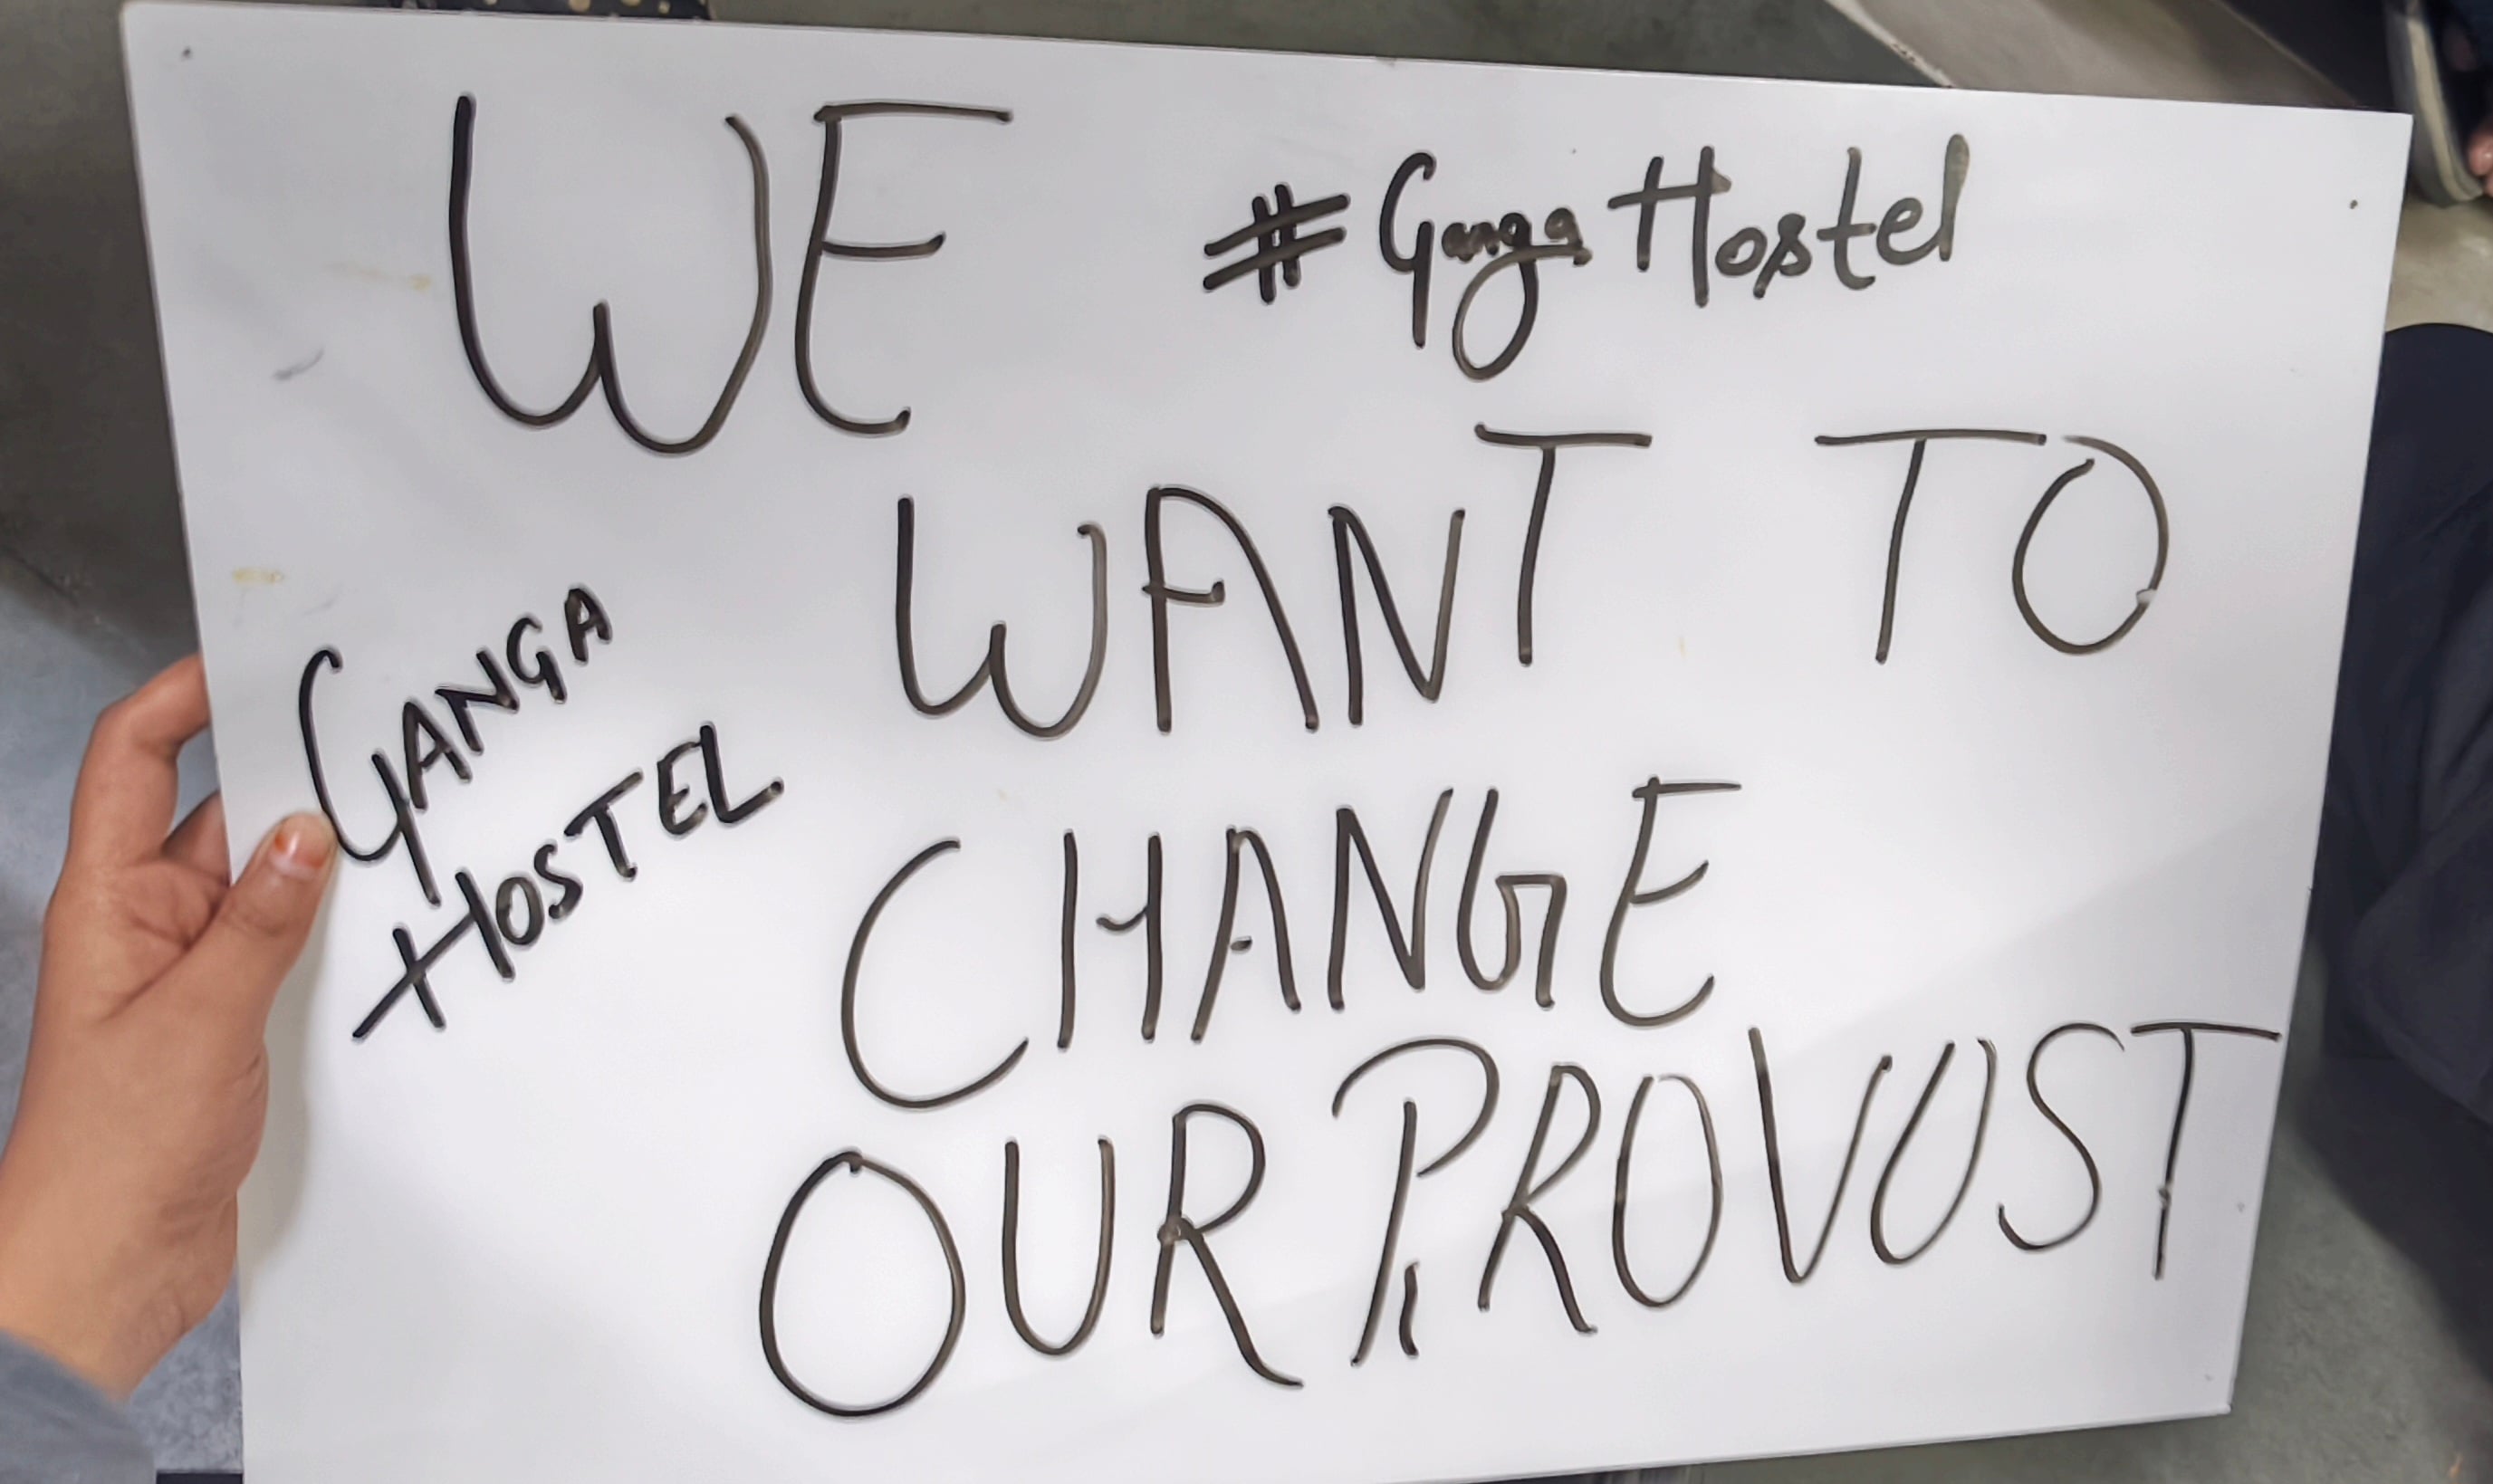 WE
#Ganga Hostel
WANT TO
GANGA
HOSTEL
CHANGE
OUR PROVOST